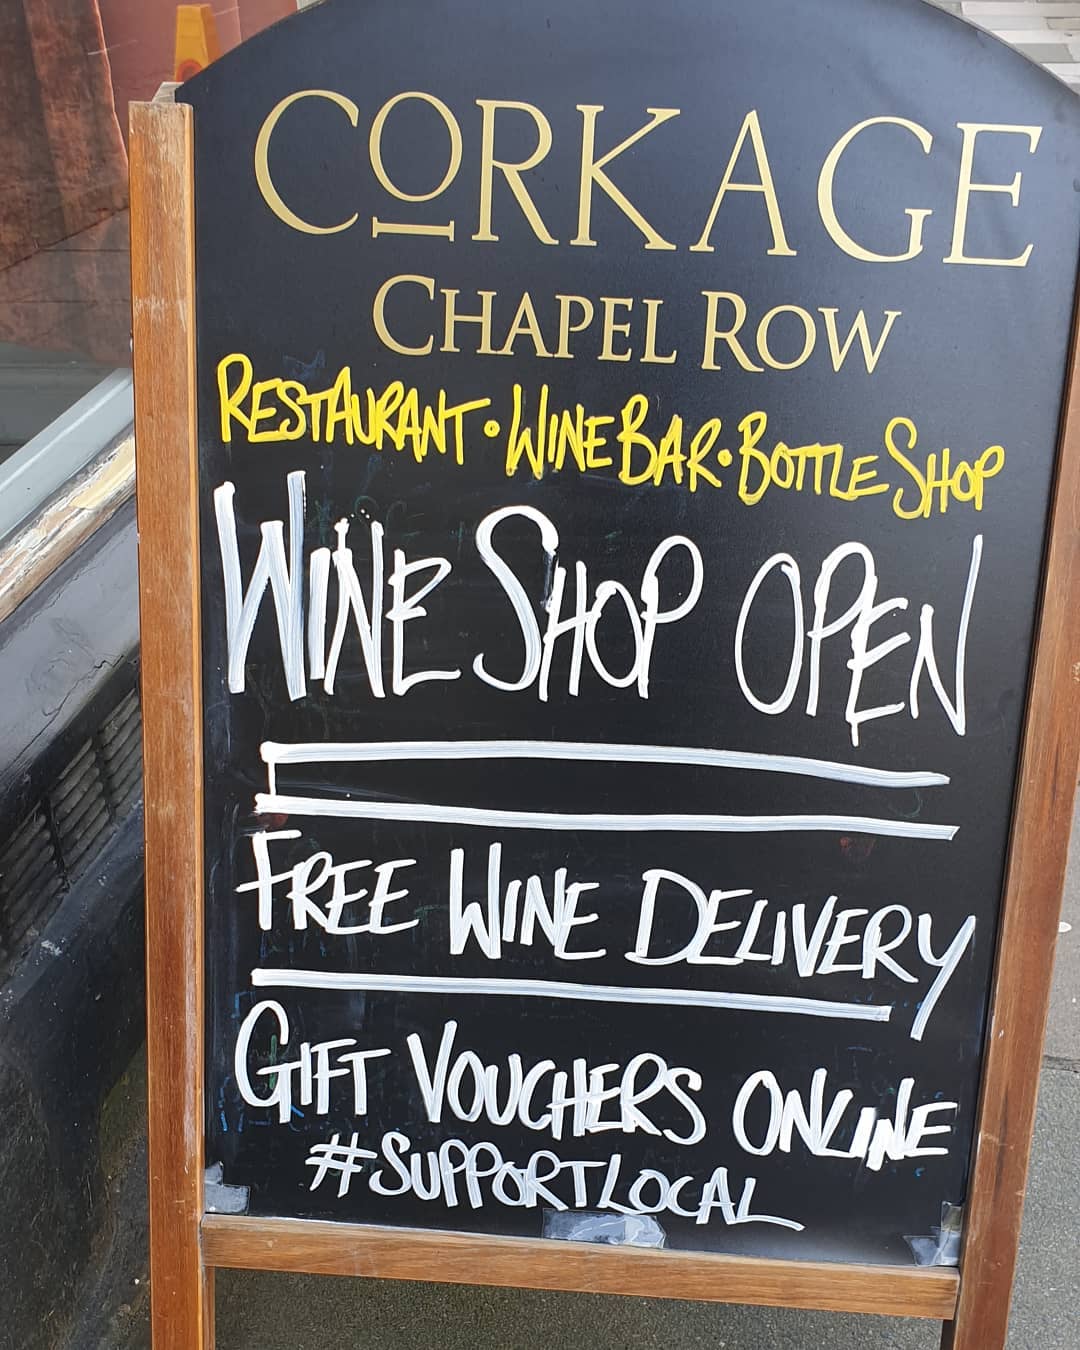 CORKAGE
CHAPEL ROW
RESTAURANT • WINE BAR • BOTTLE SHOP
WINE SHOP OPEN
FREE WINE DELIVERY
GIFT VOUCHERS ONLINE
#SUPPORTLOCAL